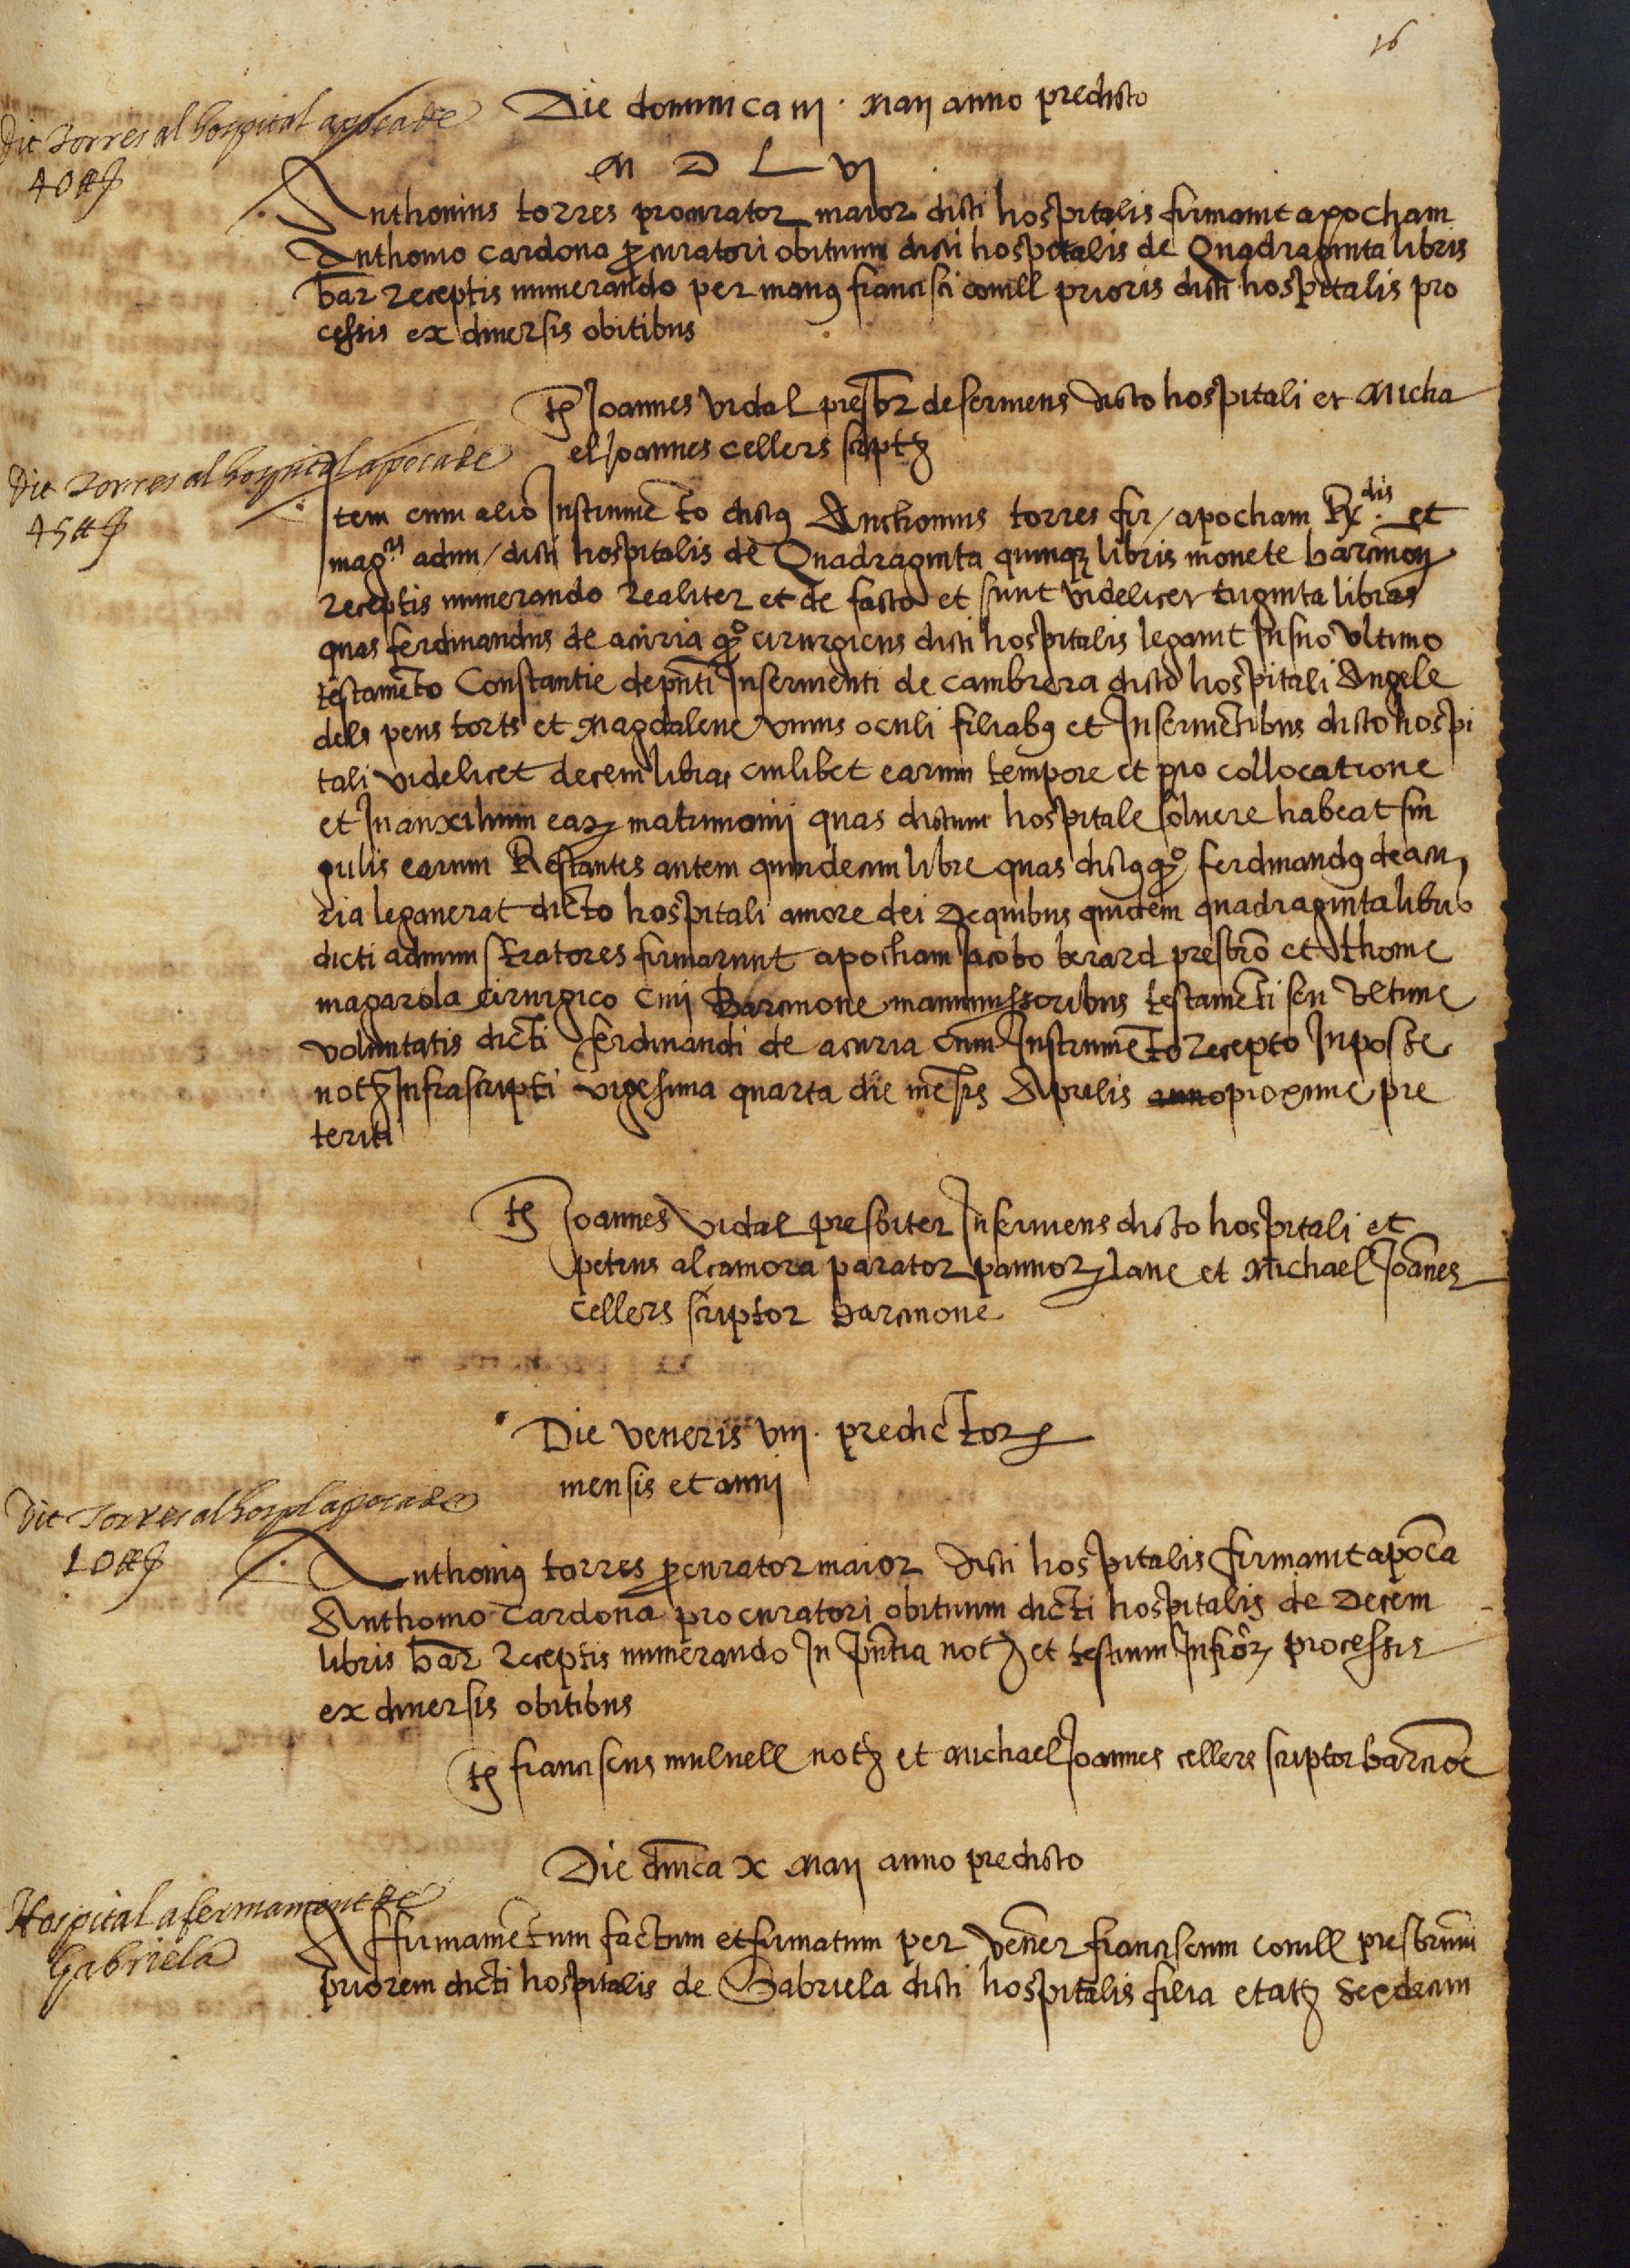 16
Die dominica iij. Maij anno predicto
M D L vj
Dit Torres al hospital apoca de
40 ℔ s
Anthonius torres procurator maior dicti hospitalis firmavit apocham
Anthonio cardona procuratori obituum dicti hospitalis de Quadraginta libris
bar receptis numerando per manus francisci conill prioris dicti hospitalis pro
cessis ex diversis obitibus
ts Joannes vidal presbr deserviens dicto hospitali et Micha
el Joannes cellers script
Dit Torres al hospital apoca de
45 ℔ s
Item cum alio Instrumento dictus Anthonius torres fir / apocham Rdis et
mag adm / dicti hospitalis de Quadraginta quinque libris monete barcinon
receptis numerando realiter et de facto et sunt videlicet triginta libras
quas ferdinandus de acuria qo cirurgicus dicti hospitalis legavit In suo ultimo
testamento Constantie depnti Inservienti de cambrera dicto hospitali Angele
dels peus torts et Magdalene unius oculi filiabus et Inservientibus dicto hospi
tali videlicet decem libras cuilibet earum tempore et pro collocatione
et In auxilium earum matrimonij quas dictum hospitale solvere habeat sin
gulis earum Restantes autem quindecim libre quas dictus qo ferdinandus de acu
ria legaverat dicto hospitali amore dei De quibus quidem quadraginta libris
dicti administratores firmarunt apocham Jacobo berard presbro et Thome
magarola cirurgico civi Barcinone manumissoribus testamenti seu ultime
voluntatis dicti ferdinandi de acuria cum Instrumento recepto In posse
not Infrascripti vigesima quarta die mensis Aprilis anno proxime pre
teriti
ts Joannes vidal presbiter Inserviens dicto hospitali et
petrus alcamora parator pannor lane et Michael Joannes
cellers scriptor barcinone
Die veneris viij. predictor
mensis et anni
Dit Torres al hospl apoca de
10 ℔ s
Anthonius torres procurator maior dicti hospitalis firmavit apoca
Anthonio Cardona procuratori obituum dicti hospitalis de Decem
libris bar receptis numerando In pntia not et testium Infror processis
ex diversis obitibus
ts franciscus mulnell not et Michael Joannes cellers scriptor barcinoe
Die dnica x Maij anno predicto
Hospital afermament de
Gabriela
Affirmamentum factum et firmatum per vener franciscum conill presbrum
priorem dicti hospitalis de Gabriela dicti hospitalis filia etat sexdecim